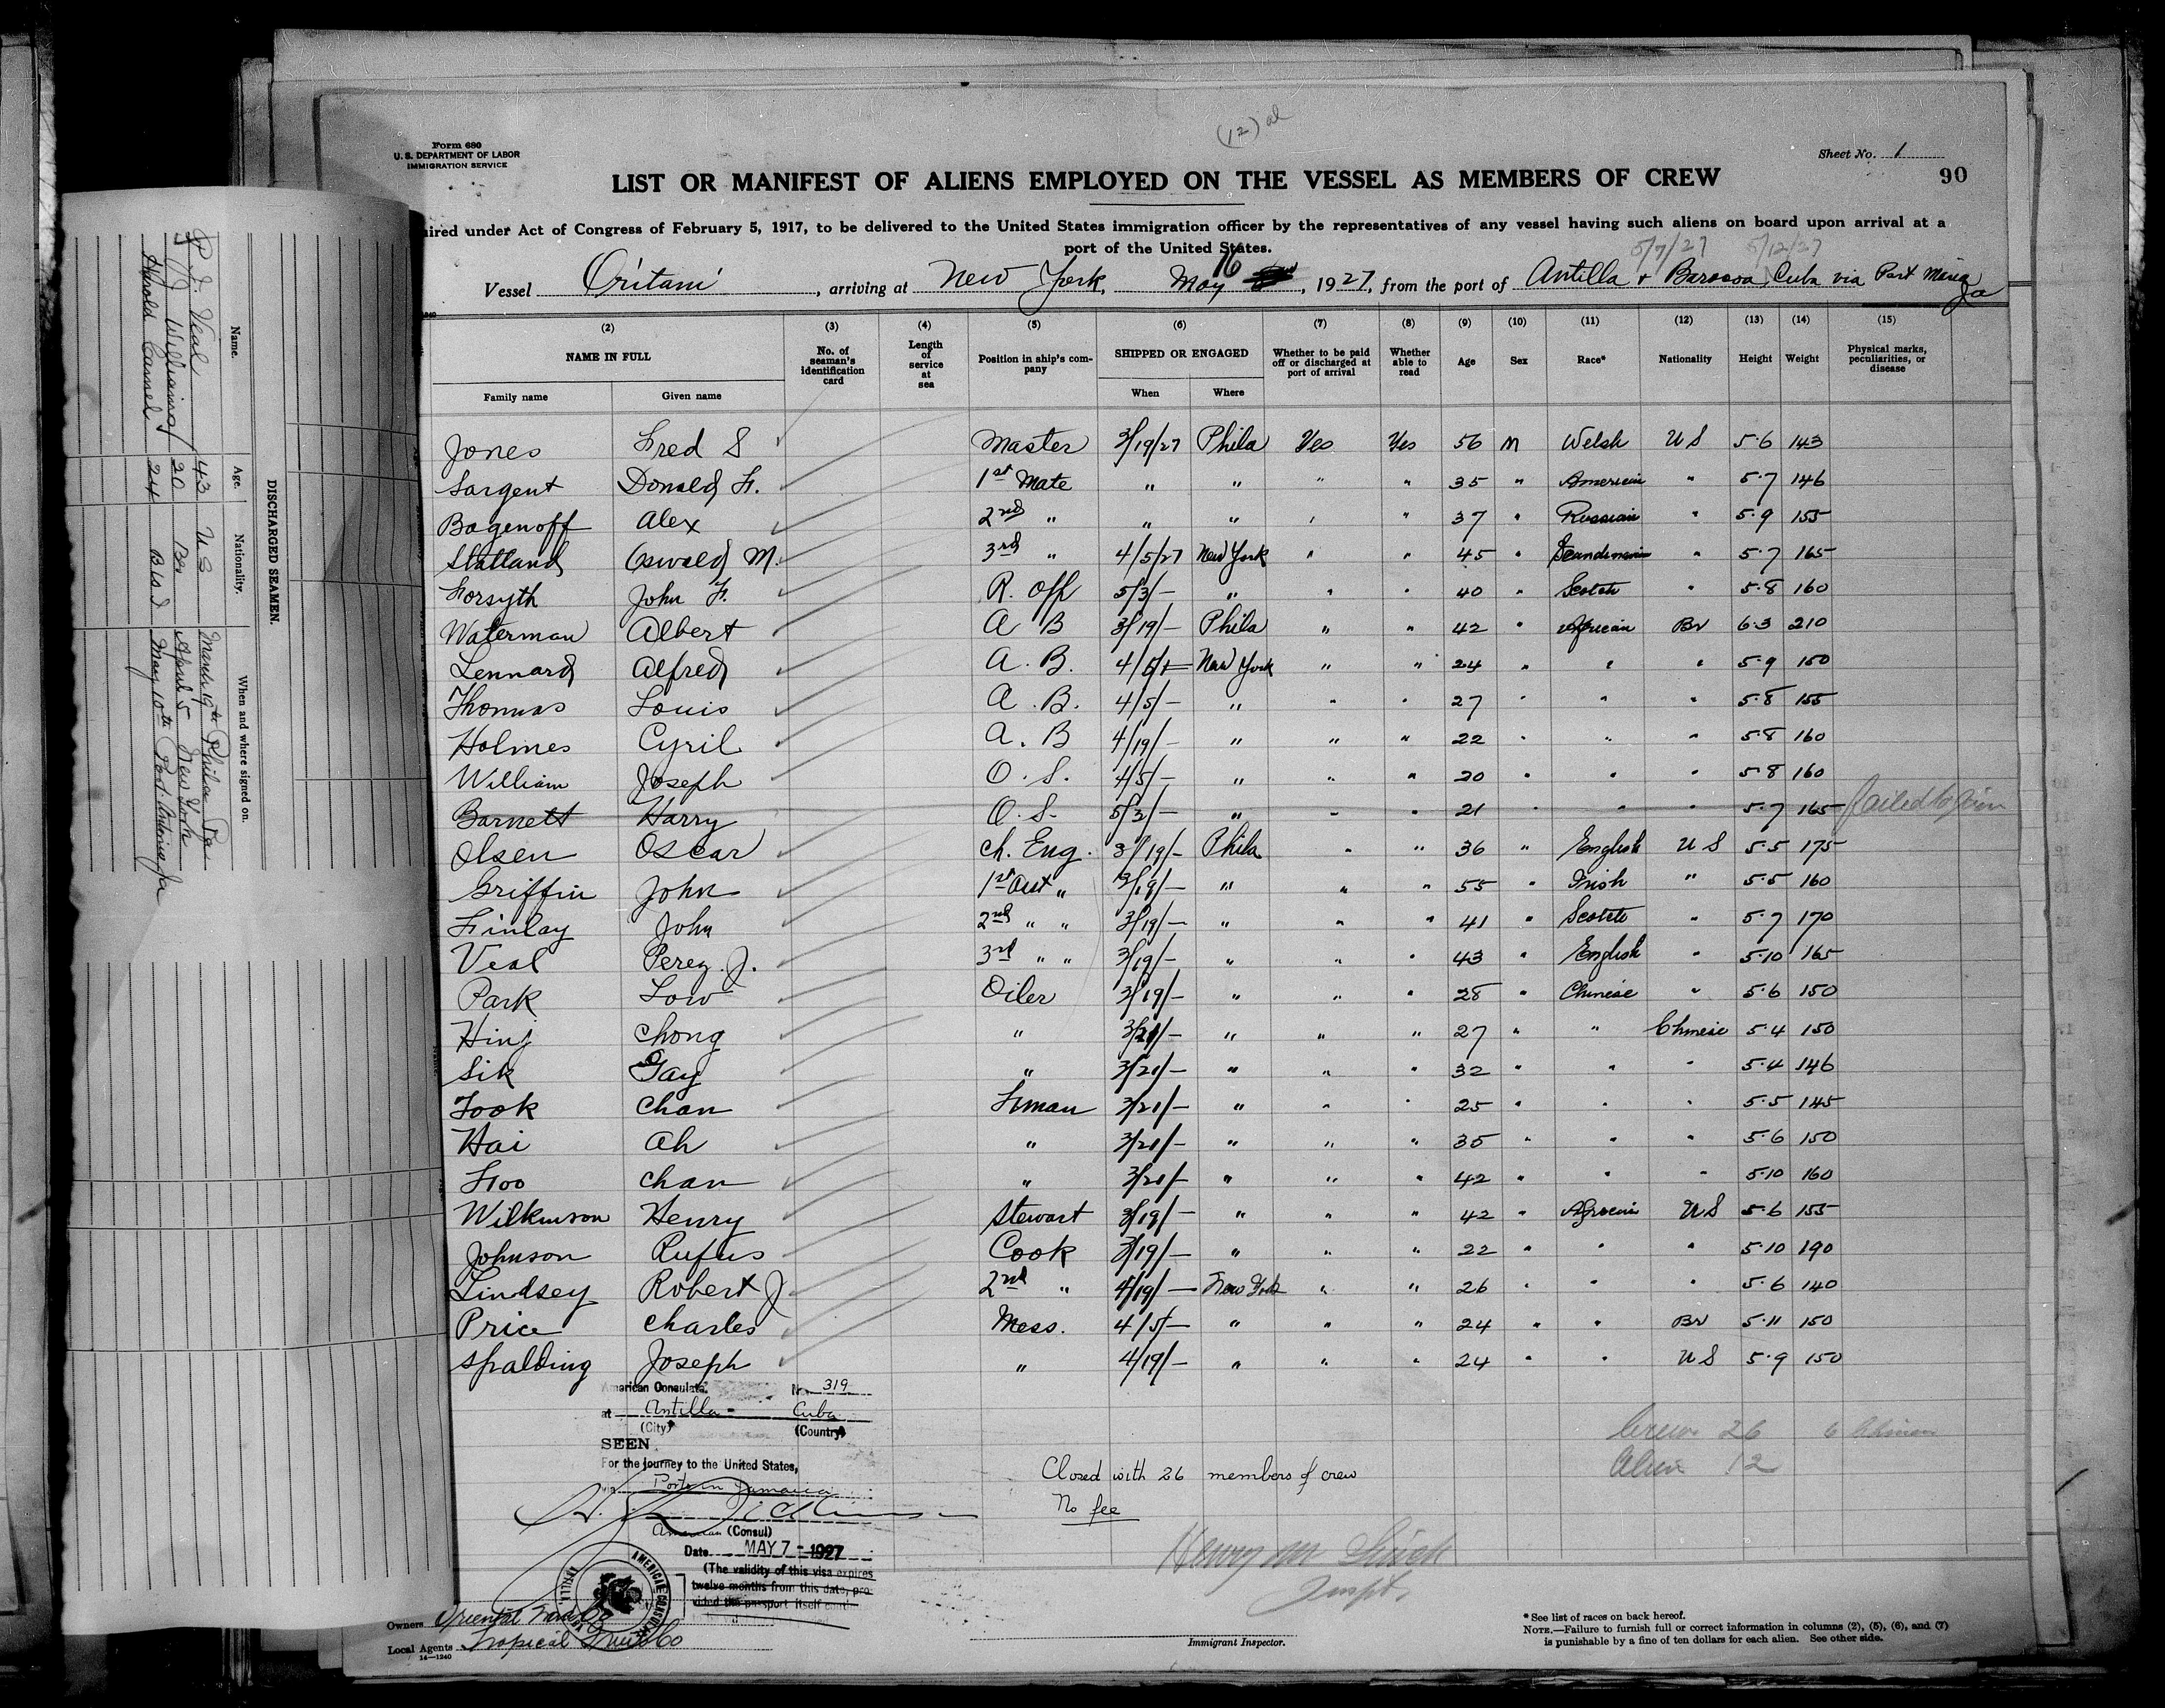 (12) al
Form 680
U. S. DEPARTMENT OF LABOR
IMMIGRATION SERVICE
Sheet No. 1
LIST OR MANIFEST OF ALIENS EMPLOYED ON THE VESSEL AS MEMBERS OF CREW
90
uired under Act of Congress of February 5, 1917, to be delivered to the United States immigration officer by the representatives of any vessel having such aliens on board upon arrival at a
port of the United States.
5/7/27 5/12/27
Vessel Oritani, arriving at New York, May 16, 1927, from the port of Antilla & Baracoa, Cuba via Port Maria Ja
(2) (3) (4) (5) (6) (7) (8) (9) (10) (11) (12) (13) (14) (15)
NAME IN FULL No. of seaman's identification card Length of service at sea Position in ship's company SHIPPED OR ENGAGED Whether to be paid off or discharged at port of arrival Whether able to read Age Sex Race* Nationality Height Weight Physical marks, peculiarities, or disease
Family name Given name When Where
Jones Fred S Master 3/19/27 Phila Yes Yes 56 M Welsh U S 5.6 143
Sargent Donald F. 1st Mate " " " " 35 " American " 5.7 146
Bogenoff Alex 2nd " " " " " 37 " Russian " 5.9 155
Statland Oswald M. 3rd " 4/5/27 New York " " 45 " Scandinavian " 5.7 165
Forsyth John F. R. Opp 5/3/- " " " 40 " Scotch " 5.8 160
Waterman Albert A B 3/19/- Phila " " 42 " African Br 6.3 210
Lennard Alfred A. B. 4/5/- New York " " 24 " " " 5.9 150
Thomas Louis A. B. 4/5/- " " " 27 " " " 5.8 155
Holmes Cyril A. B 4/19/- " " " 22 " " " 5.8 160
William Joseph O. S. 4/5/- " " " 20 " " " 5.8 160
Barnett Harry O. S. 5/2/- " " " 21 " " " 5.7 165 failed to join
Olsen Oscar Ch. Eng. 3/19/- Phila " " 36 " English U S 5.5 175
Griffin John 1st Asst " 3/19/- " " " 55 " Irish " 5.5 160
Finlay John 2nd " " 3/19/- " " " 41 " Scotch " 5.7 170
Veal Percy. J. 3rd " " 3/19/- " " " 43 " English " 5.10 165
Park Low Oiler 3/19/- " " " 28 " Chinese " 5.6 150
Hing Chong " 3/21/- " " " 27 " " Chinese 5.4 150
Sik Gay " 3/21/- " " " 32 " " " 5.4 146
Fook Chan Fman 3/21/- " " " 25 " " " 5.5 145
Hai Ah " 3/21/- " " " 35 " " " 5.6 150
Foo Chan " 3/21/- " " " 42 " " " 5.10 160
Wilkinson Henry Stewart 3/19/- " " " 42 " African U S 5.6 155
Johnson Rufus Cook 3/19/- " " " 22 " " " 5.10 190
Lindsey Robert J 2nd " 4/19/- New York " " 26 " " " 5.6 140
Price Charles Mess. 4/5/- " " " 24 " " Br 5.11 150
Spalding Joseph " 4/19/- " " " 24 " " U S 5.9 150
American Consulate No. 319
at Antilla - Cuba
(City) (Country)
SEEN
For the journey to the United States,
via Ports in Jamaica
American (Consul)
Date MAY 7 - 1927
(The validity of this visa expires
twelve months from this date, pro-
vided the passport itself conti-
AMERICAN CONSULATE
ANTILLA
Closed with 26 members of crew
No fee
Crew 26 6 Chinese
Alien 12
Henry M
Inspt.
Immigrant Inspector.
Owners Oriental Nav Co
Local Agents Tropical Fruit Co
14—1240
* See list of races on back hereof.
NOTE.—Failure to furnish full or correct information in columns (2), (5), (6), and (7)
is punishable by a fine of ten dollars for each alien. See other side.
DISCHARGED SEAMEN.
Name. Age. Nationality. When and where signed on.
P. J. Veal 43 U S March 19th Phila Pa.
J Williams 20 Br April 5 New York
Harold Cannel 24 B W I May 10th Port Antonio Ja